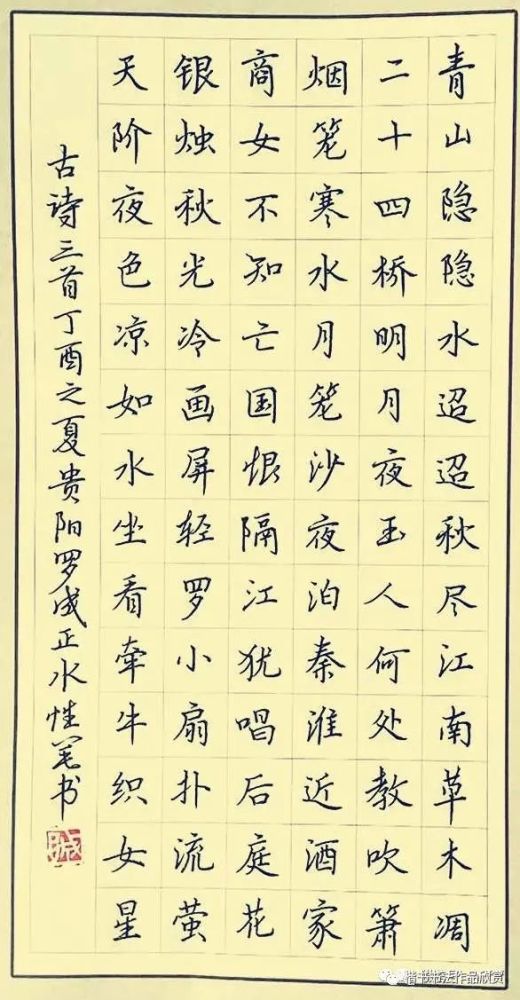 青山隐隐水迢迢秋尽江南草木凋
二十四桥明月夜玉人何处教吹箫
烟笼寒水月笼沙夜泊秦淮近酒家
商女不知亡国恨隔江犹唱后庭花
银烛秋光冷画屏轻罗小扇扑流萤
天阶夜色凉如水坐看牵牛织女星
古诗三首丁酉之夏贵阳罗成正水性笔书
楷书书法作品欣赏